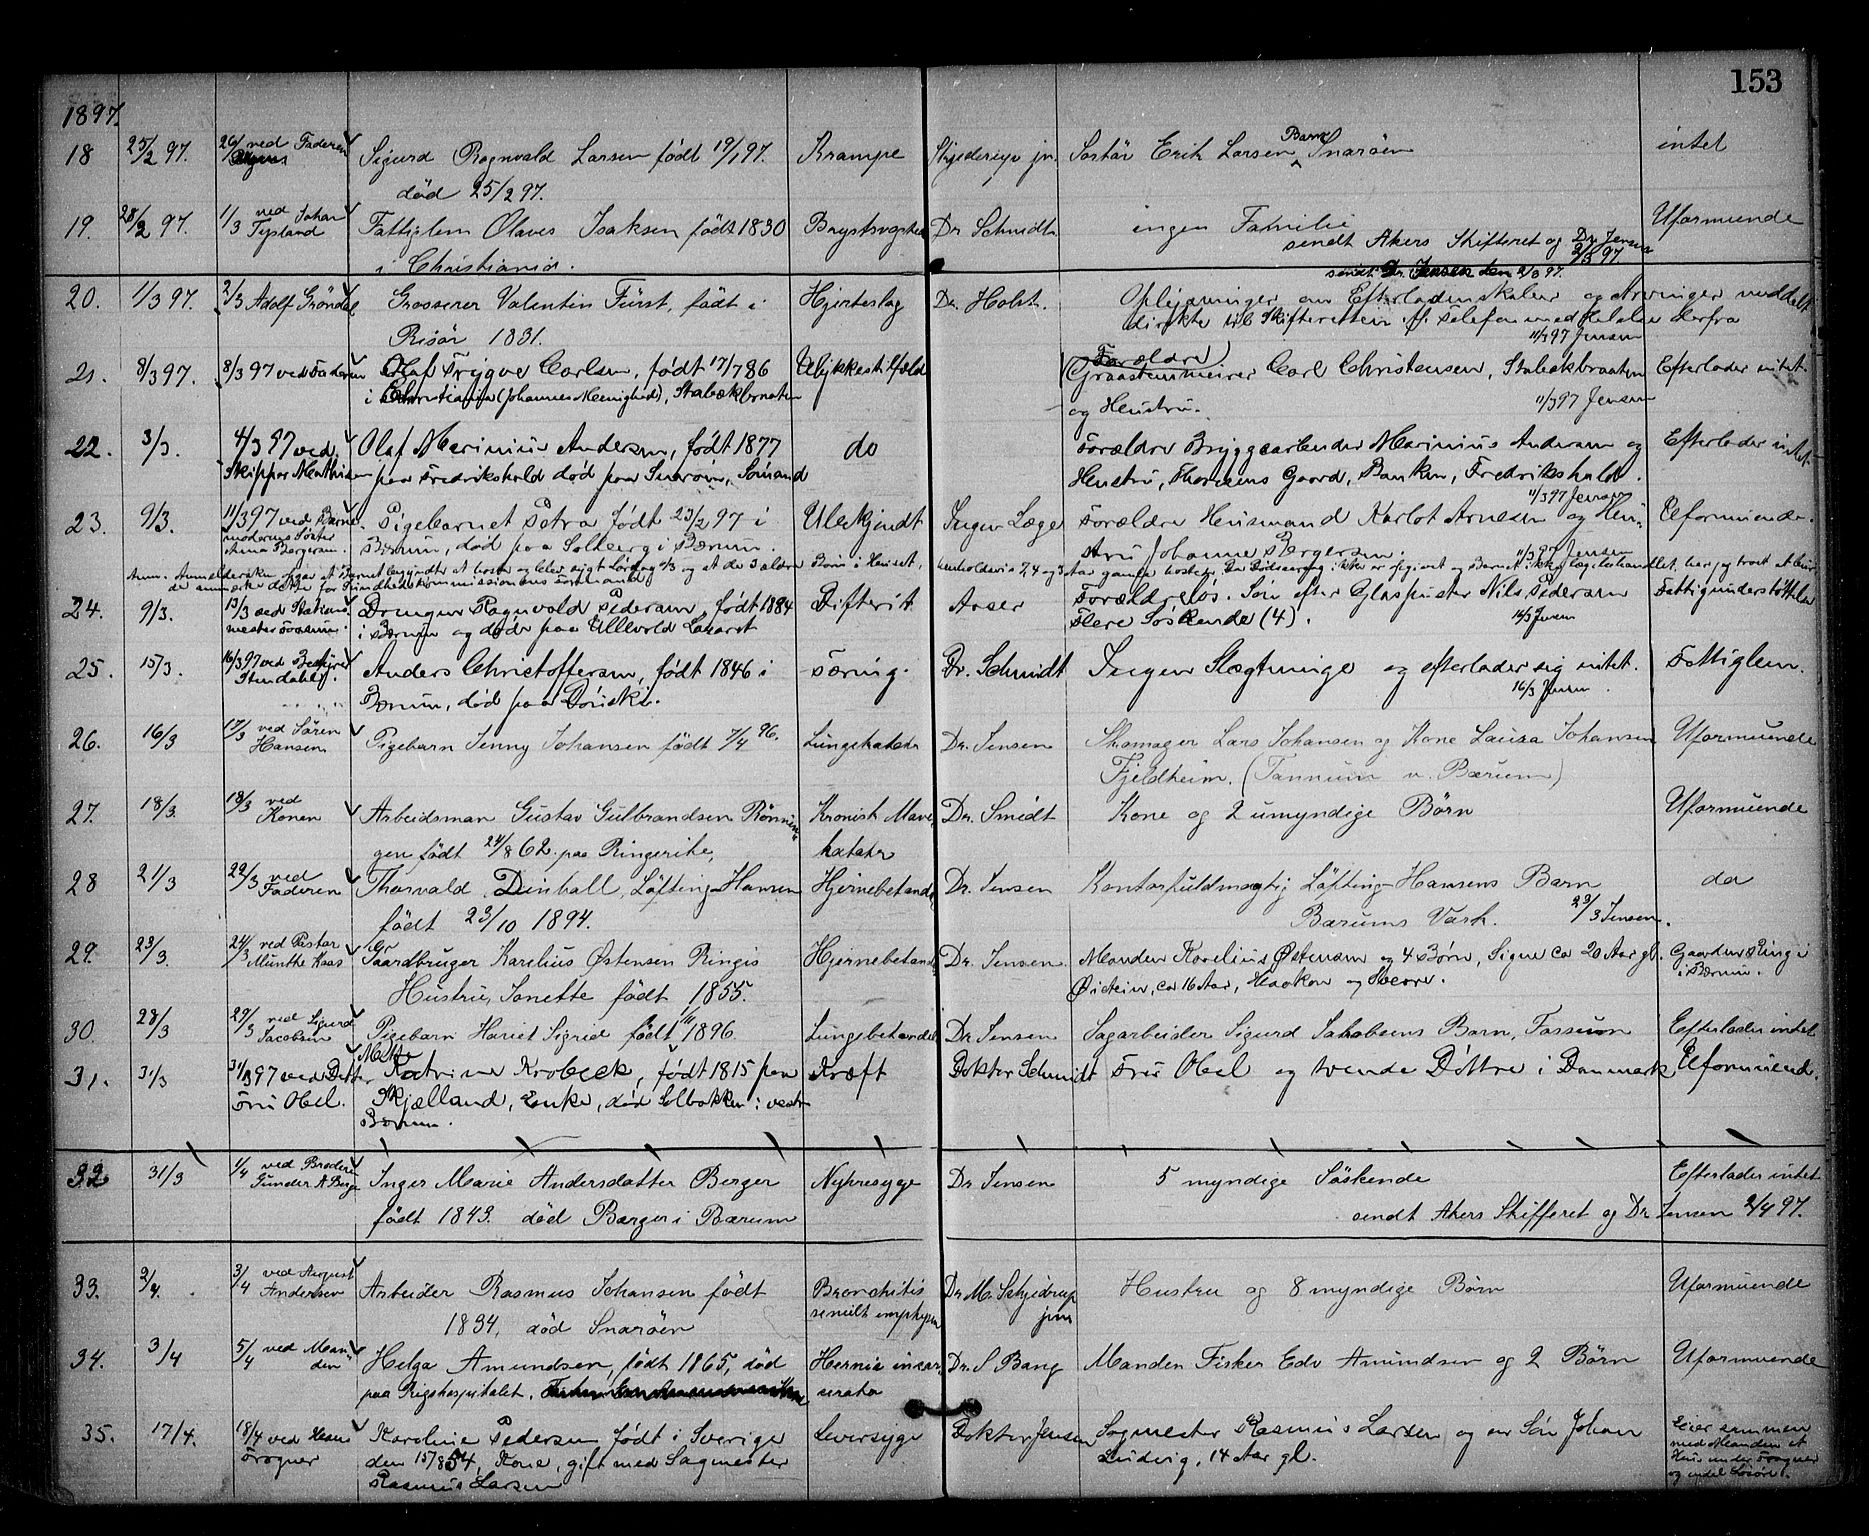 153
1897.
18 25/2 97. 26/2 ved Faderen Sigurd Ragnvald Larsen født 19/1 97. Krampe Skjederup jr. Erik Larsen Barn Snarøen intet
død 25/2 97.
19. 28/2 97. 1/3 ved Johan Tysland Fattiglem Olaves Isaksen født 1830 Brystsygdom Dr. Schmidt ingen Familie Uformuende
i Christiania. sendt Akers Skifteret og Dr. Jensen 2/3 97.
20. 1/3 97. 2/3 Adolf Grøndal Grosserer Valentin Fürst, født i Hjerteslag Dr. Holst. Oplysninger om Efterladenskaber og Arvinger meddelt
Risør 1831. direkte til Skifteretten
11/3 97 Jensen
21. 8/3 97. 8/3 97 ved Faderen Olaf Trygve Carlsen, født 17/7 86 Ulykkestilfælde Forældre Graastensmurer Carl Christensen, Stabækbraaten Efterlader intet.
i Christiania (Johannes Menighed), Stabækbraaten og Hustru. 11/3 97 Jensen
22. 3/3. 4/3 97 ved Olaf Marinius Andersen, født 1877 do Forældre Bryggearbeider Marinius Andersen og Efterlader intet
Skipper Mathisen paa Fredrikshald død paa Snarøen, Sømand Hustru, Gaard, Banken, Fredrikshald.
11/3 97 Jensen
23. 9/3. 11/3 97 ved Barnemoderens Søster Anna Bergersen. Pigebarnet Petra født 23/2 97 i Ubekjendt Ingen Læge Forældre Husmand Karlot Arnesen og Hustru Johanne Bergersen. Uformuende.
Bærum, død paa Solberg i Bærum. 11/3 97 Jensen
24. 9/3. 13/3 ved Stationsmester Drengen Ragnvald Pedersen, født 1884 Difterit Aaser Forældreløs. Søn efter Glaspuster Nils Pedersen Fattigunderstøttelse
i Bærum og døde paa Ullevold Lazaret Flere Søskende (4). 16/3 Jensen
25. 15/3. 16/3 97 ved Bestyrer Anders Christoffersen, født 1846 i Tæring. Dr. Schmidt Ingen Slægtninge og efterlader sig intet. Fattiglem.
Bærum, død paa Dønski. 16/3 Jensen
26. 16/3 17/3 ved Søren Hansen Pigebarn Jenny Johansen født 7/4 96. Lungekatarr Dr. Jensen Skomager Lars Johansen og Kone Laura Johansen Uformuende
Fjeldheim. (Tannum v. Bærum)
27. 18/3. 18/3 ved Konen Arbeidsman Gustav Gulbrandsen Rønningen født 24/8 62 paa Ringerike, Kronisk Mavekatarr Dr. Smidt Kone og 2 umyndige Børn Uformuende
28 21/3 22/3 ved Faderen Thorvald Løfting-Hansen Hjernebetænd. Dr. Jensen Kontorfuldmægtig Løfting-Hansens Barn do
født 23/10 1894. Bærums Værk. 23/3 Jensen.
29. 23/3. 24/3 ved Pastor Munthe Kaas Gaardbruger Karelius Østensen Ringis Hjernebetænd. Dr. Jensen Manden Karelius Østensen og 4 Børn, Signe ca 20 Aar gl. Gaarden Ring i Bærum.
Hustru, Janette født 1855. Øistein, ca 16 Aar, Haakon og Haavar.
30. 28/3 29/3 ved Sigurd Jacobsen Pigebarn Hariet Sigrid født 1896. Lungebetændel Dr. Jensen Sagarbeider Sigurd Jakobsens Barn, Fossum Efterlader intet
31. 31/3 31/3 97 ved Datter Fru Obel. Katrine Krobeck, født 1815 paa Kræft Doktor Schmidt Fru Obel og tvende Døttre i Danmark Uformuend.
Skjælland, Enke, død Solbakken i vestre Bærum.
32 31/3 1/4 ved Broderen Gunder A Berger Inger Marie Andersdatter Berger Nyresyge Dr Jensen 5 myndige Søskende Efterlader intet
født 1843. død Berger i Bærum sendt Akers Skifteret og Dr. Jensen 2/4 97.
33. 2/4. 3/4 ved August Andersen Arbeider Rasmus Johansen født Bronchitis Dr. M. Schjødrup jun Hustru og 8 myndige Børn Uformuende
1834, død Snarøen
34. 3/4 5/4 ved Manden Helga Amundsen, født 1865, død Hernia incarserata Dr. S Bang Manden Fisker Edv Amundsen og 2 Børn Uformuende
paa Rigshospitalet.
35. 17/4. 18/4 ved Hans Frogner Karoline Pedersen født i Sverige Leversyge Doktor Jensen Sagmester Rasmus Larsen og en Søn Johan Eier sammen med Manden et Hus under Frogner og endel Løsøre.
den 15/8 54, Kone, gift med Sagmester Ludvig, 14 Aar gl.
Rasmus Larsen